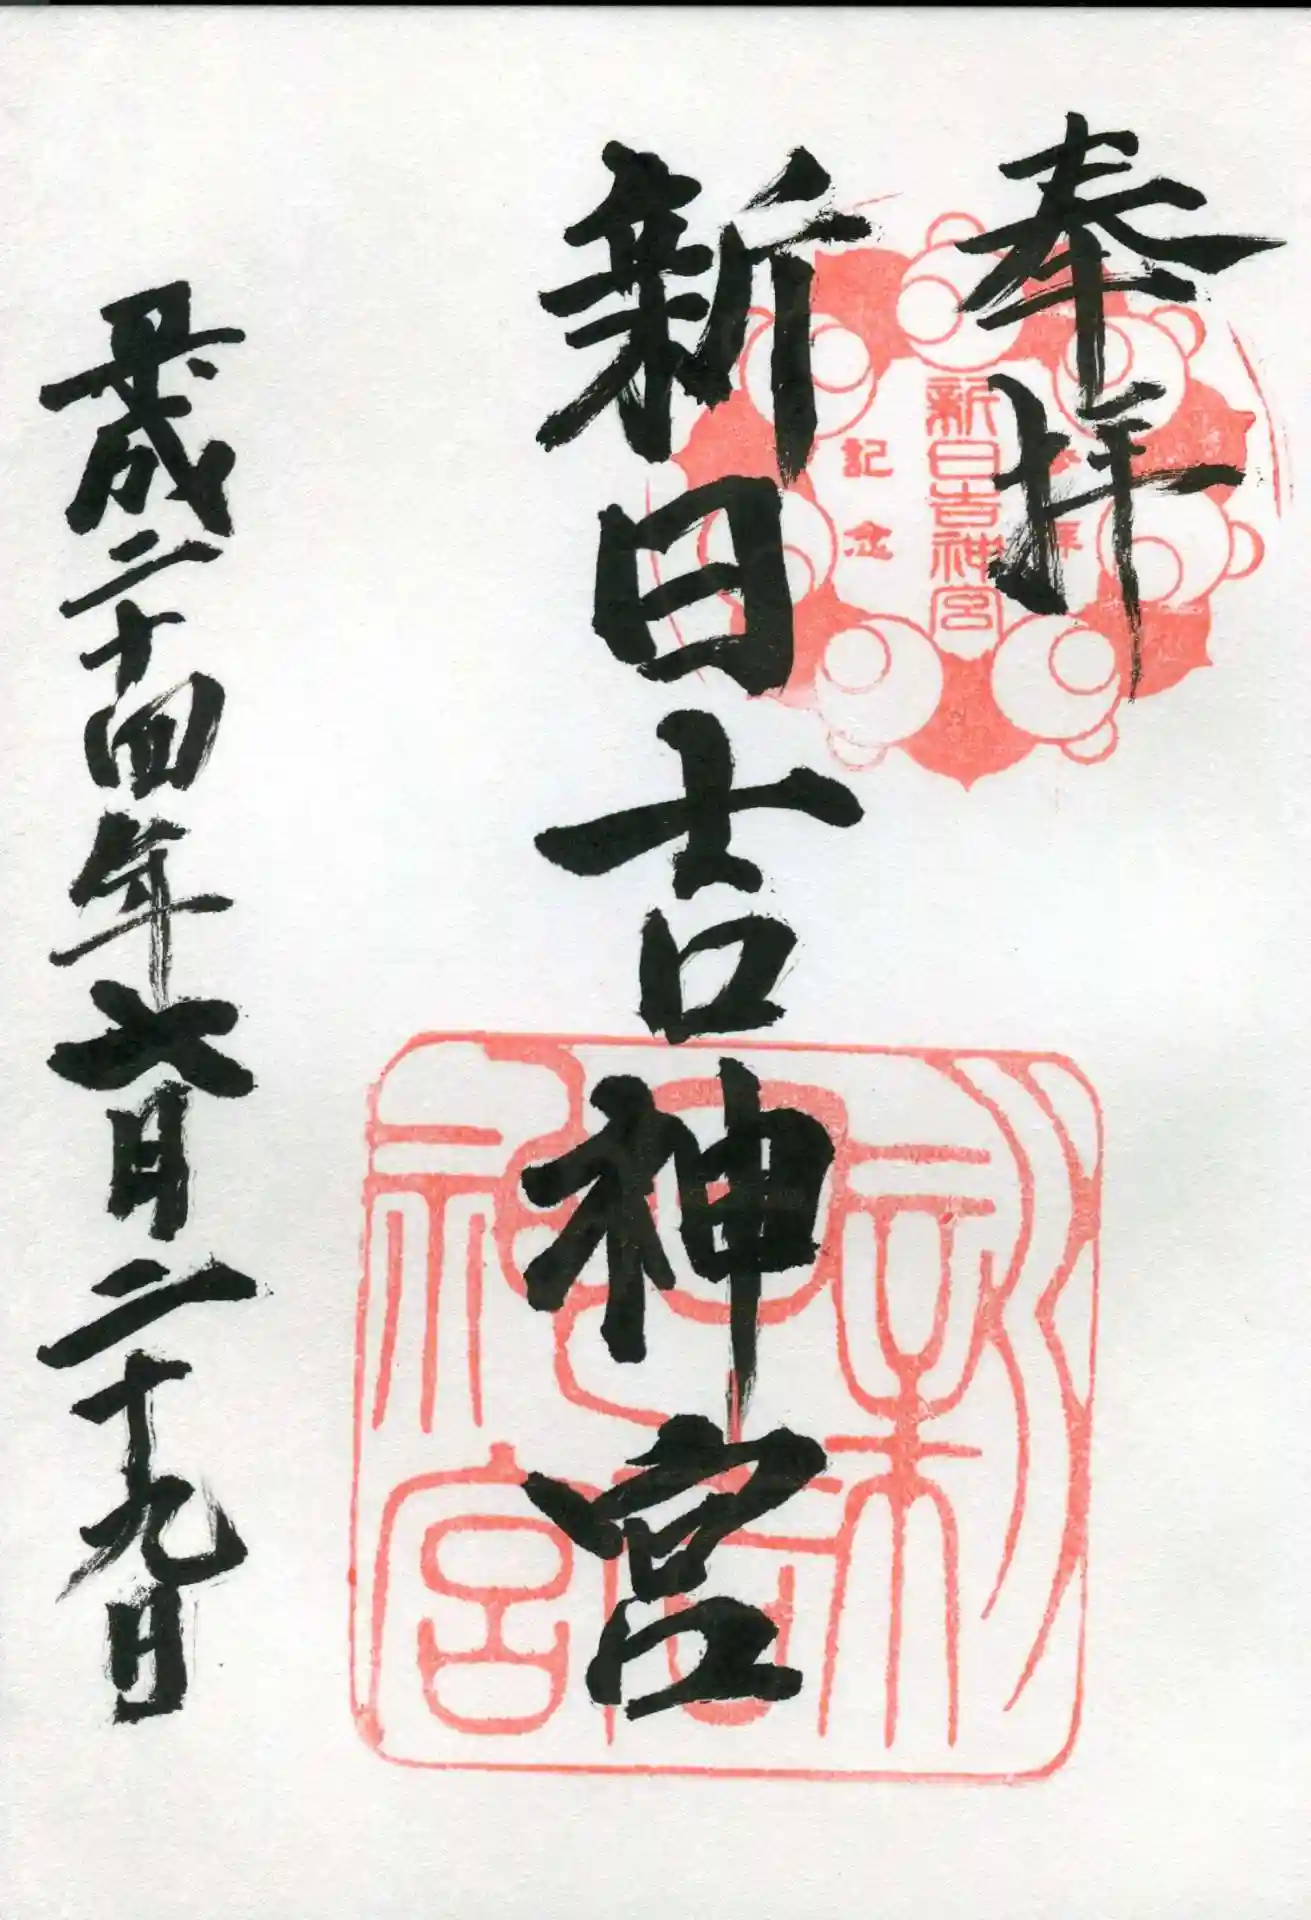 奉拝
新日吉神宮
平成二十四年六月二十九日
参拝
新日吉神宮
記念
新日吉神宮